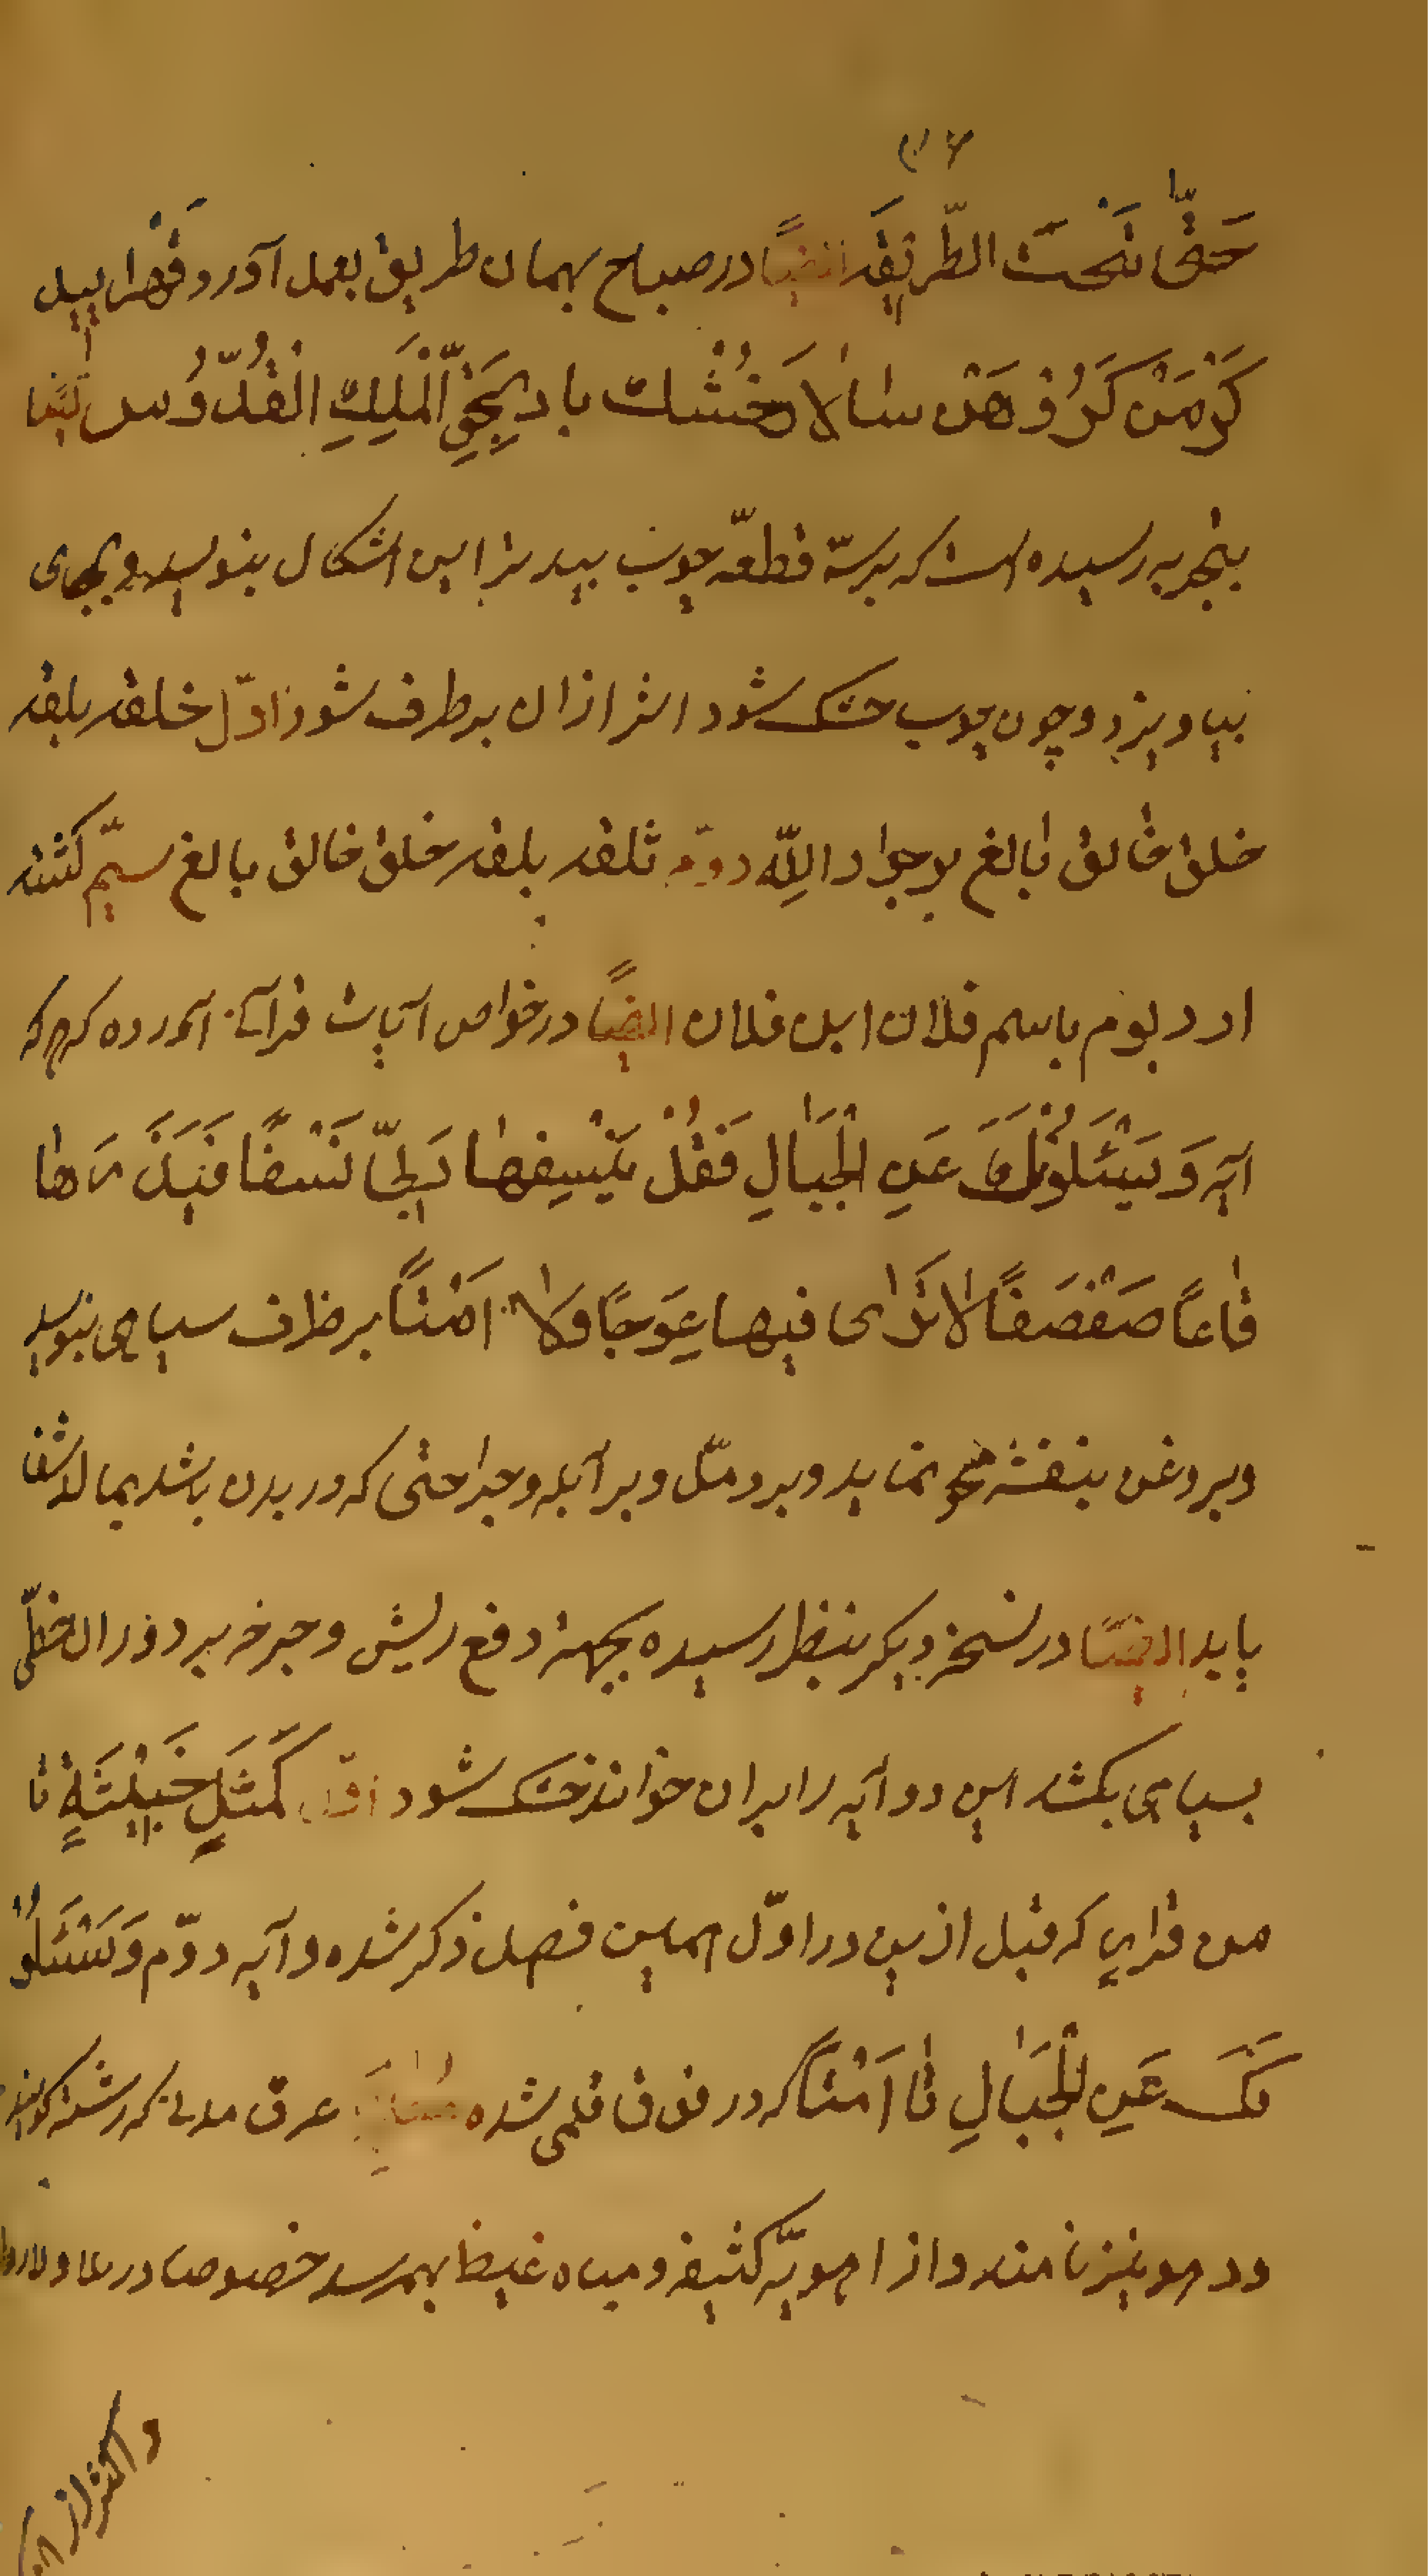 حَتّٰى تَحْتَ الطَّرِیقَه ایضًا در صباح بهمان طریق بعمل آورد
سالا خُشْك باد بِحَقِّ الْمَلِكِ الْقُدُّوس ایضا
بتجربه رسیده است که بر سه قطعه چوب بید تر این اشکال بنویسد و بجای
بیاویزد و چون چوب خشک شود اثر ازان برطرف شود اوّل خلقه بلقه
خلق خالق بالغ بوجواد اللّه دوّم ثلقه بلقه خلق خالق بالغ سیّم
باسم فلان ابن فلان ایضًا در خواص آیات قرآنی آورده که هر که
آیه وَیَسْئَلُونَكَ عَنِ الْجِبَالِ فَقُلْ یَنْسِفُهٰا رَبّی نَسْفًا فَیَذَرُهٰا
قٰاعًا صَفْصَفًا لاٰ تَرٰى فیها عِوَجًا وَلاٰ اَمْتًا بر ظرف سیاهی بنویسد
و بروغن بنفشه محو نماید و بر دمّل و بر آبله و جراحتی که در بدن باشد بمالد شفا
یابد ایضًا در نسخه دیگر بنظر رسیده بجهة دفع ریش و جرخه بر دوران خطّی
بسیاهی بکشد این دو آیه را بران خواند خشک شود اوّل كَمَثَلِ خَبِیثَةٍ تا
من قرار که قبل ازین در اوّل همین فصل ذکر شده و آیه دوّم وَیَسْئَلُو
نَكَ عَنِ الْجِبَالِ تا اَمْتًا که در فوق قلمی شده عرق مدنی که رشته گویند
و نیز نامند و از اهویّه کثیفه و میاه غلیظ بهم رسد خصوصا در
و اکثر از